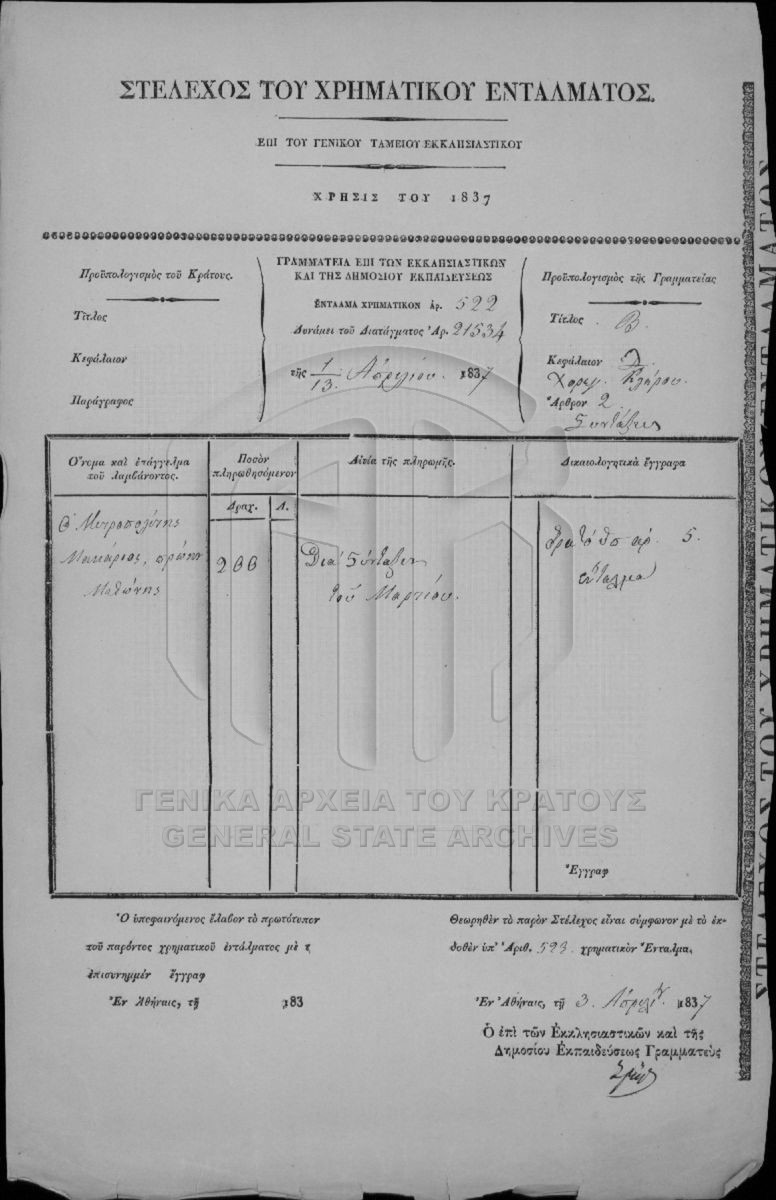 ΣΤΕΛΕΧΟΣ ΤΟΥ ΧΡΗΜΑΤΙΚΟΥ ΕΝΤΑΛΜΑΤΟΣ.
ΕΠΙ ΤΟΥ ΓΕΝΙΚΟΥ ΤΑΜΕΙΟΥ ΕΚΚΛΗΣΙΑΣΤΙΚΟΥ
ΧΡΗΣΙΣ ΤΟΥ 1837
Προϋπολογισμὸς τοῦ Κράτους.
Τίτλος
Κεφάλαιον
Παράγραφος
ΓΡΑΜΜΑΤΕΙΑ ΕΠΙ ΤΩΝ ΕΚΚΛΗΣΙΑΣΤΙΚΩΝ
ΚΑΙ ΤΗΣ ΔΗΜΟΣΙΟΥ ΕΚΠΑΙΔΕΥΣΕΩΣ
ΕΝΤΑΛΜΑ ΧΡΗΜΑΤΙΚΟΝ ἀρ. 522
Δυνάμει τοῦ Διατάγματος Ἀρ. 21534
τῆς 1/13 Ἀπριλίου 1837
Προϋπολογισμὸς τῆς Γραμματείας
Τίτλος Β.
Κεφάλαιον
Κλήρου.
Ἄρθρον 2
Συντάξεις
Ὄνομα καὶ ἐπάγγελμα
τοῦ λαμβάνοντος.
Ποσὸν
πληρωθησόμενον
Αἰτία τῆς πληρωμῆς.
Δικαιολογητικὰ ἔγγραφα
Δραχ. Λ.
Ὁ Μητροπολίτης
Μακάριος, πρώην
Μεθώνης
200
Διὰ Σύνταξιν
τοῦ Μαρτίου.
ἀρ. 5.
ἔνταλμα
Ἔγγραφ
Ὁ ὑποφαινόμενος ἔλαβον τὸ πρωτότυπον
τοῦ παρόντος χρηματικοῦ ἐντάλματος μὲ τ
ἐπισυνημμέν ἔγγραφ
Ἐν Ἀθήναις, τῇ 183
Θεωρηθὲν τὸ παρὸν Στέλεχος εἶναι σύμφωνον μὲ τὸ ἐκ-
δοθὲν ὑπ' Ἀριθ. 523 χρηματικὸν Ἔνταλμα.
Ἐν Ἀθήναις, τῇ 3. Ἀπριλίου 1837
Ὁ ἐπὶ τῶν Ἐκκλησιαστικῶν καὶ τῆς
Δημοσίου Ἐκπαιδεύσεως Γραμματεὺς
ΓΕΝΙΚΑ ΑΡΧΕΙΑ ΤΟΥ ΚΡΑΤΟΥΣ
GENERAL STATE ARCHIVES
ΣΤΕΛΕΧΟΣ ΤΟΥ ΧΡΗΜΑΤΙΚΟΥ ΕΝΤΑΛΜΑΤΟΣ